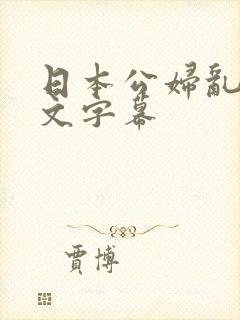 日本公婦亂
文字幕
賈博